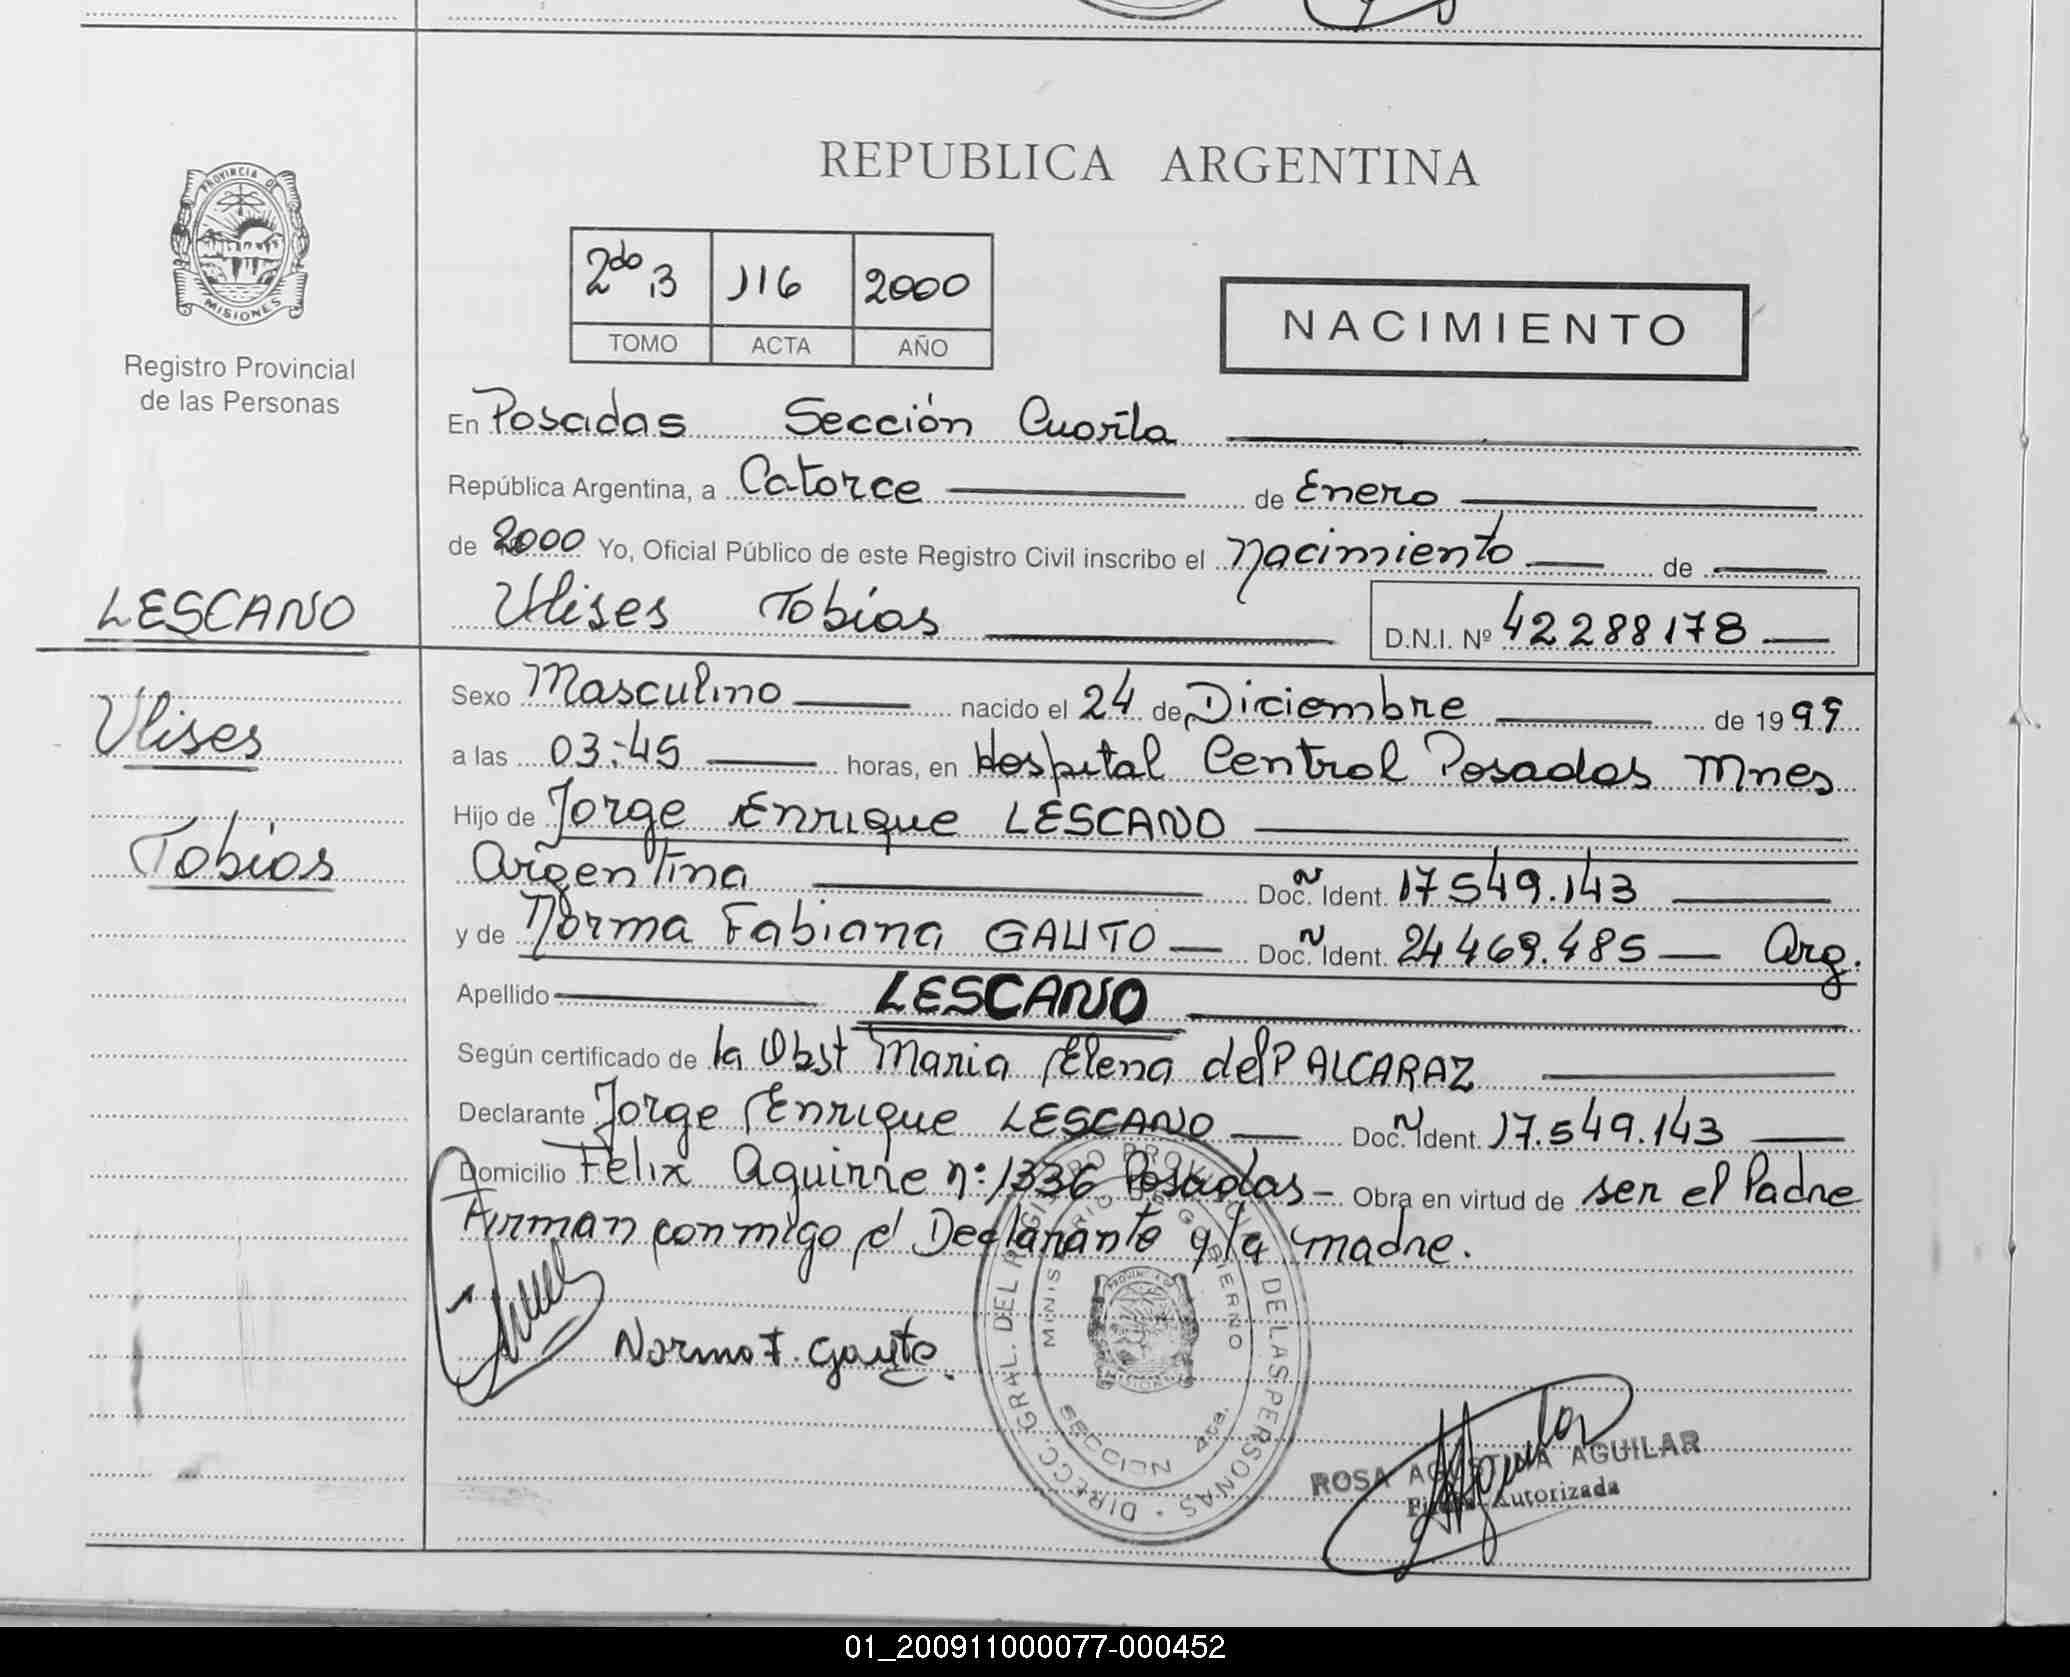 REPUBLICA ARGENTINA
PROVINCIA DE
MISIONES
Registro Provincial
de las Personas
2do 13 116 2000
TOMO ACTA AÑO
NACIMIENTO
En Posadas Sección Cuarta
República Argentina, a Catorce de Enero
de 2000 Yo, Oficial Público de este Registro Civil inscribo el Nacimiento de
LESCANO
Ulises Tobías D.N.I. Nº 42288178
Sexo Masculino nacido el 24 de Diciembre de 1999
Ulises
a las 03:45 horas, en Hospital Central Posadas Mnes
Hijo de Jorge Enrique LESCANO
Tobías
Argentina Doc. N Ident. 17549.143
y de Norma Fabiana GAUTO Doc. N Ident. 24469.485 Arg.
Apellido LESCANO
Según certificado de la Obst Maria Elena del P ALCARAZ
Declarante Jorge Enrique LESCANO Doc. N Ident. 17.549.143
Domicilio Félix Aguirre n: 1336 Posadas Obra en virtud de ser el Padre
Firman conmigo el Declarante y la madre.
Norma F. Gauto.
DIRECC. GRAL. DEL REGISTRO PROVINCIAL DE LAS PERSONAS
MINISTERIO DE GOBIERNO
SECCION 4ta.
ROSA AGUSTINA AGUILAR
Firma Autorizada
01_200911000077-000452